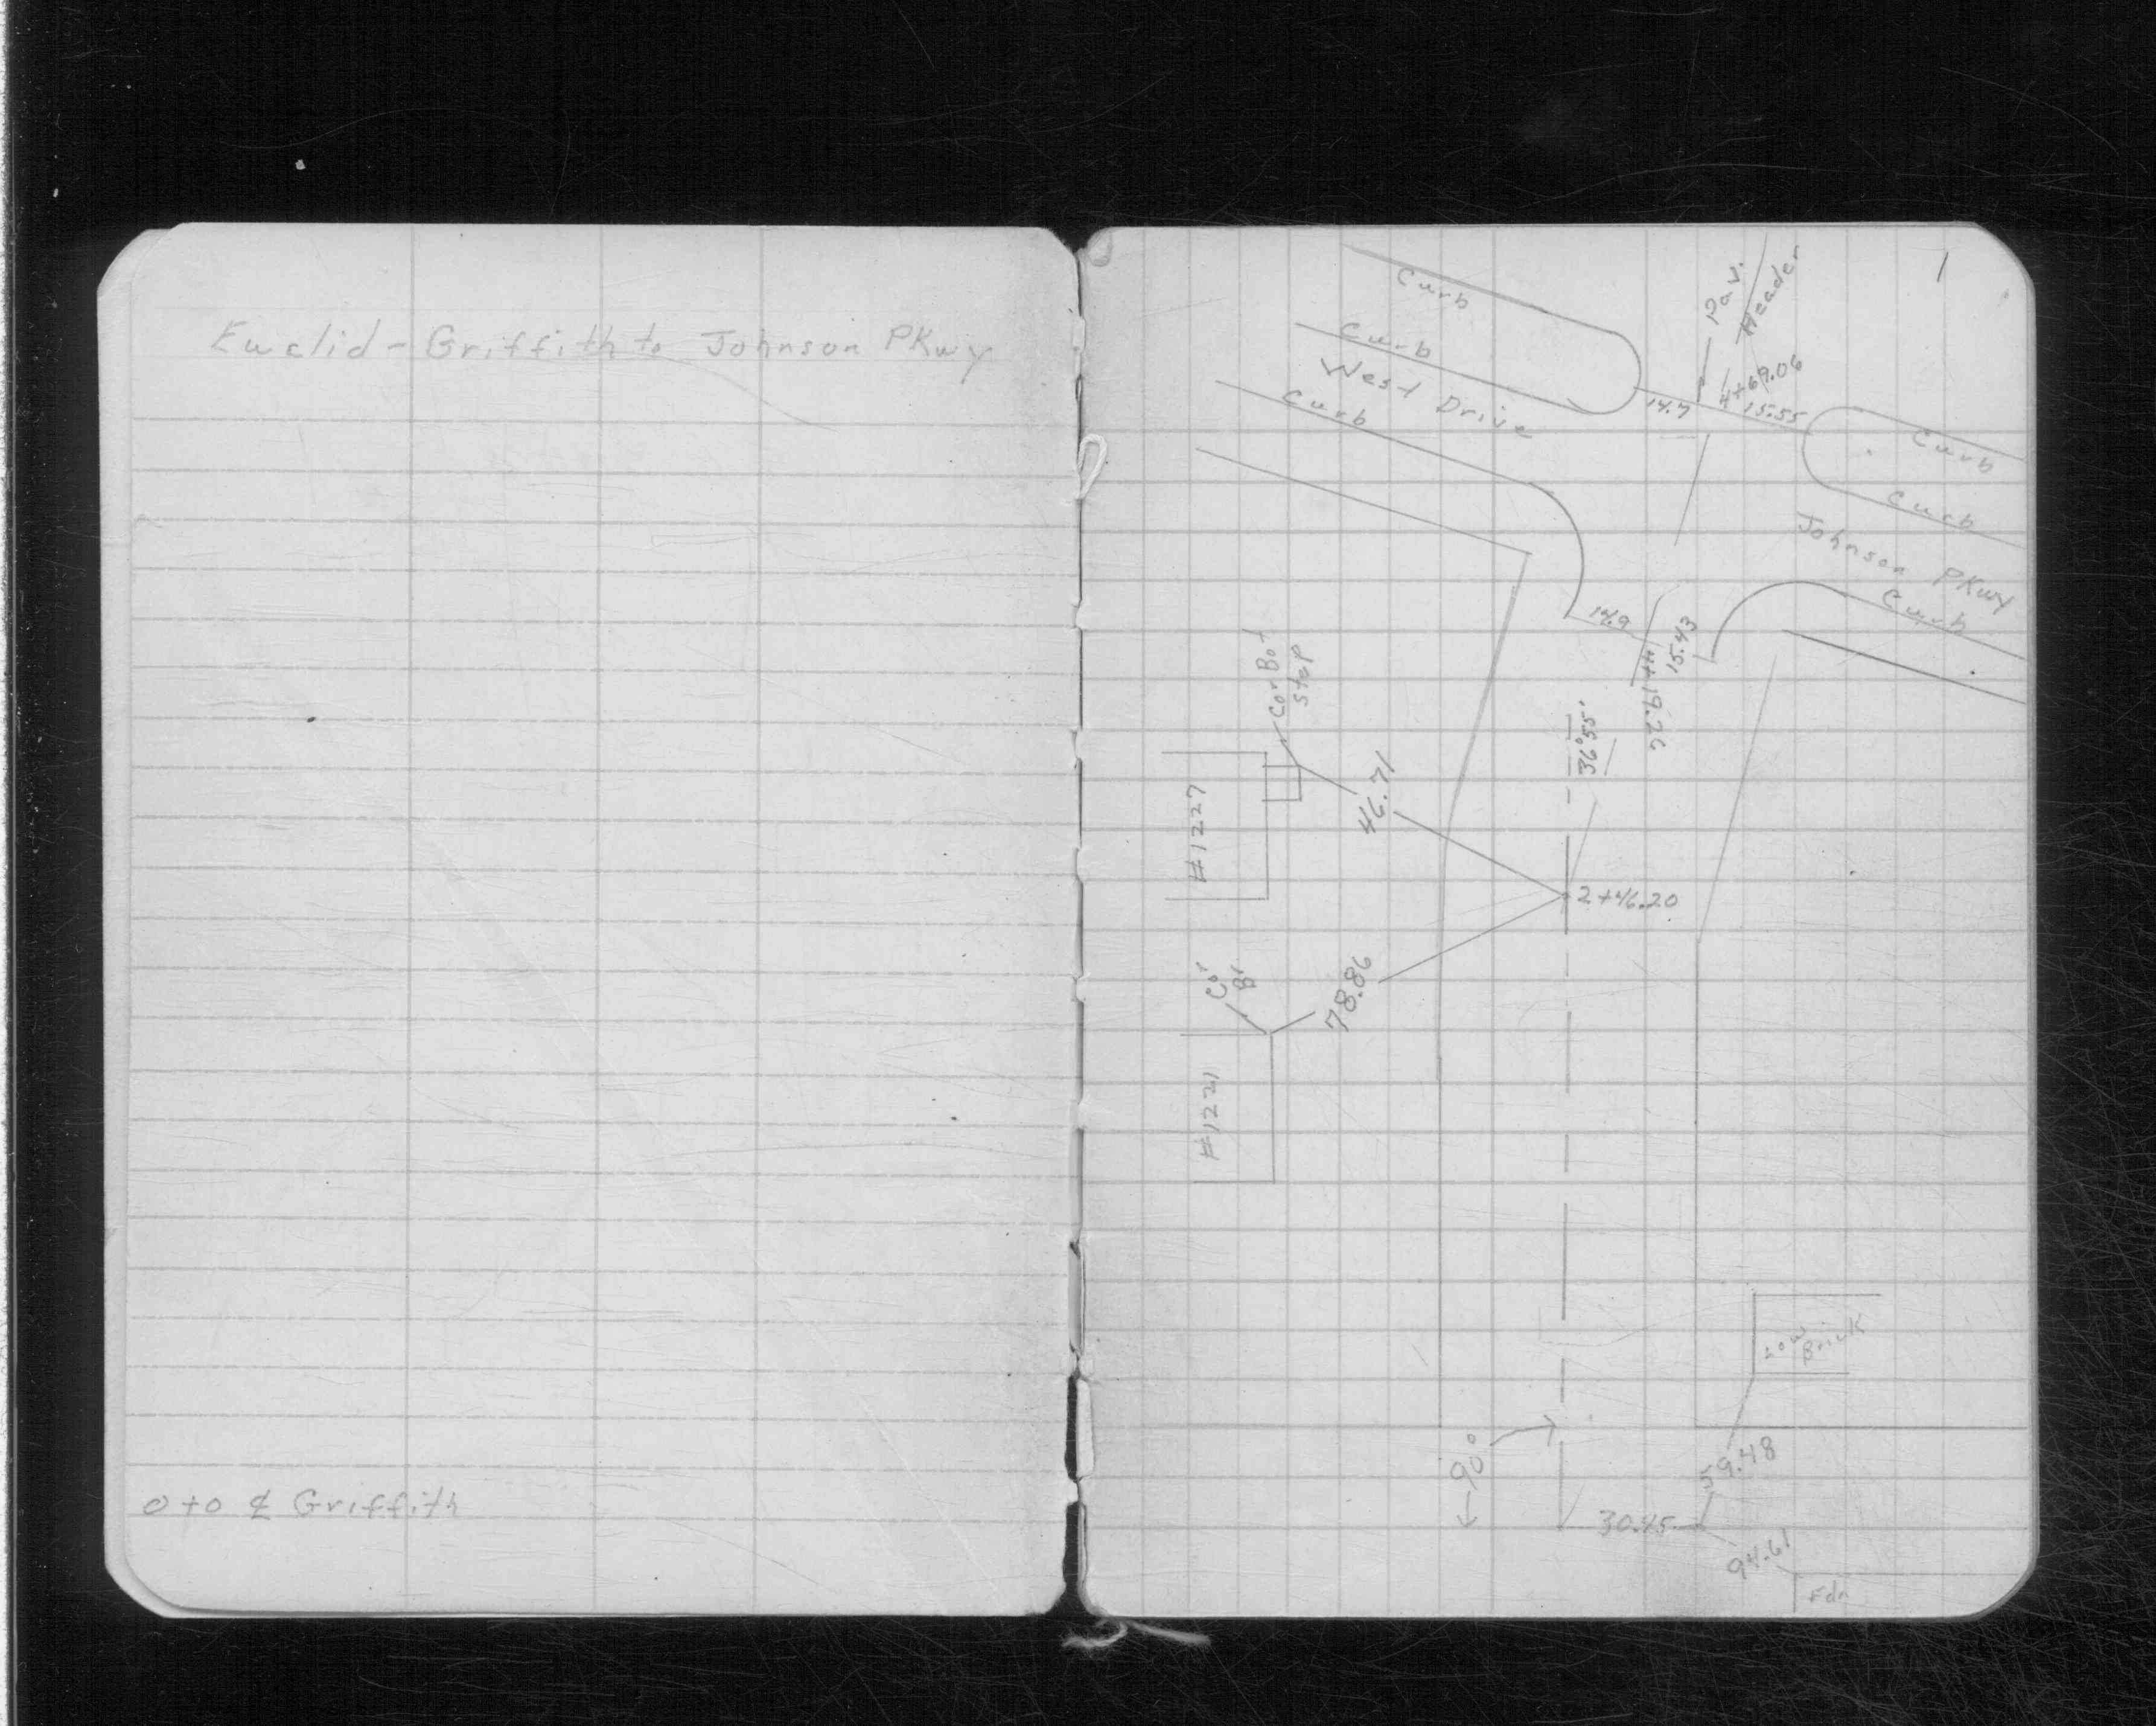 Euclid - Griffith to Johnson PKwy
0+0 ⅊ Griffith
1
Curb
Pav.
Header
Curb
West Drive
Curb
14.7
4+69.06
15.55
Curb
Curb
Johnson PKwy
Curb
14.9
4+19.26
15.43
Cor Bot
Step
36°55'
#1227
46.71
2+46.20
Cor
Br
78.86
#1221
Brick
90°
59.48
30.45
94.61
Fdn